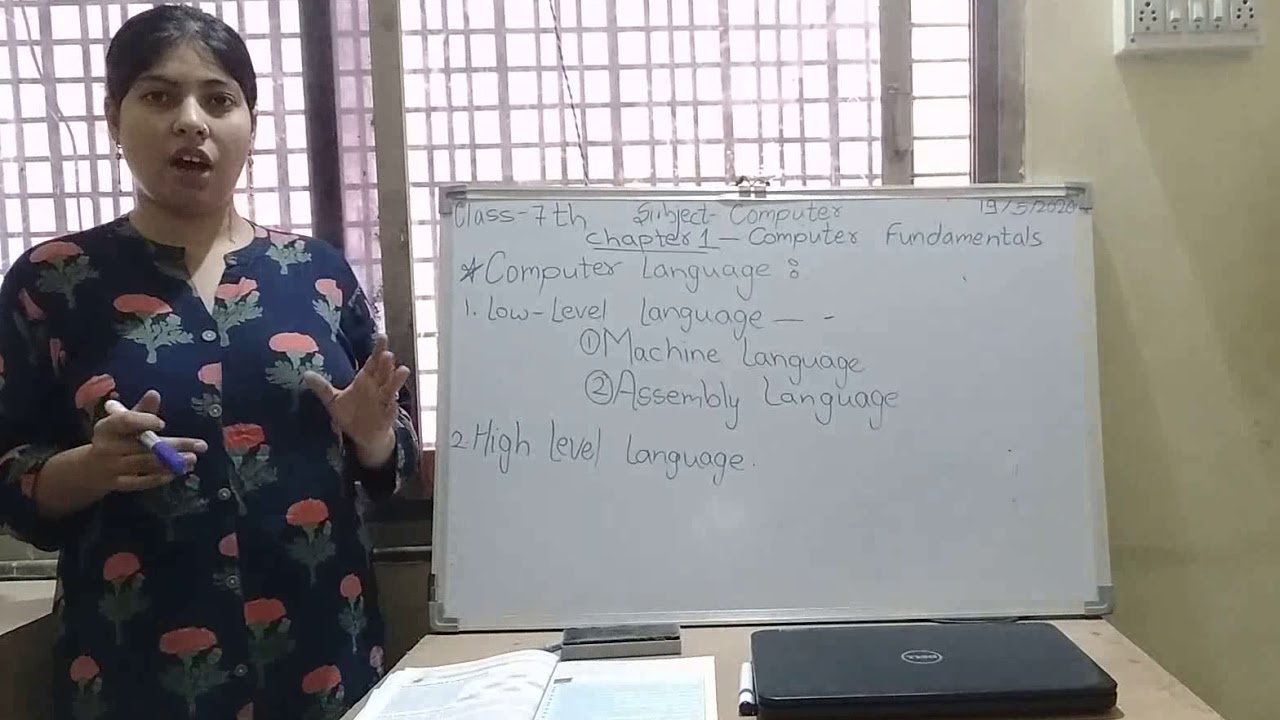 Class-7th Subject- Computer 19/5/2020
Chapter 1 – Computer Fundamentals
*Computer Language :
1. Low-Level Language — -
①Machine Language
②Assembly Language
2. High Level Language.
DELL